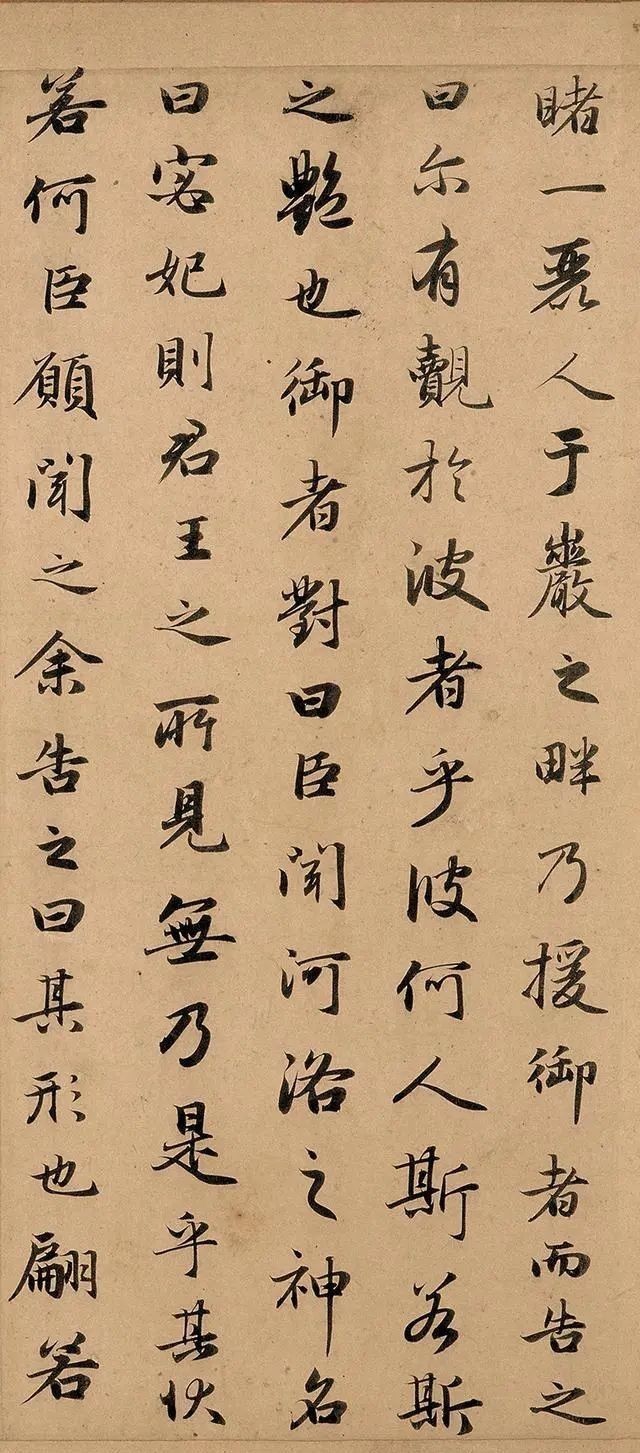 睹一麗人于巖之畔乃援御者而告之
曰尓有覿於彼者乎彼何人斯若斯
之豔也御者對曰臣聞河洛之神名
曰宓妃則君王之所見無乃是乎其狀
若何臣願聞之余告之曰其形也翩若